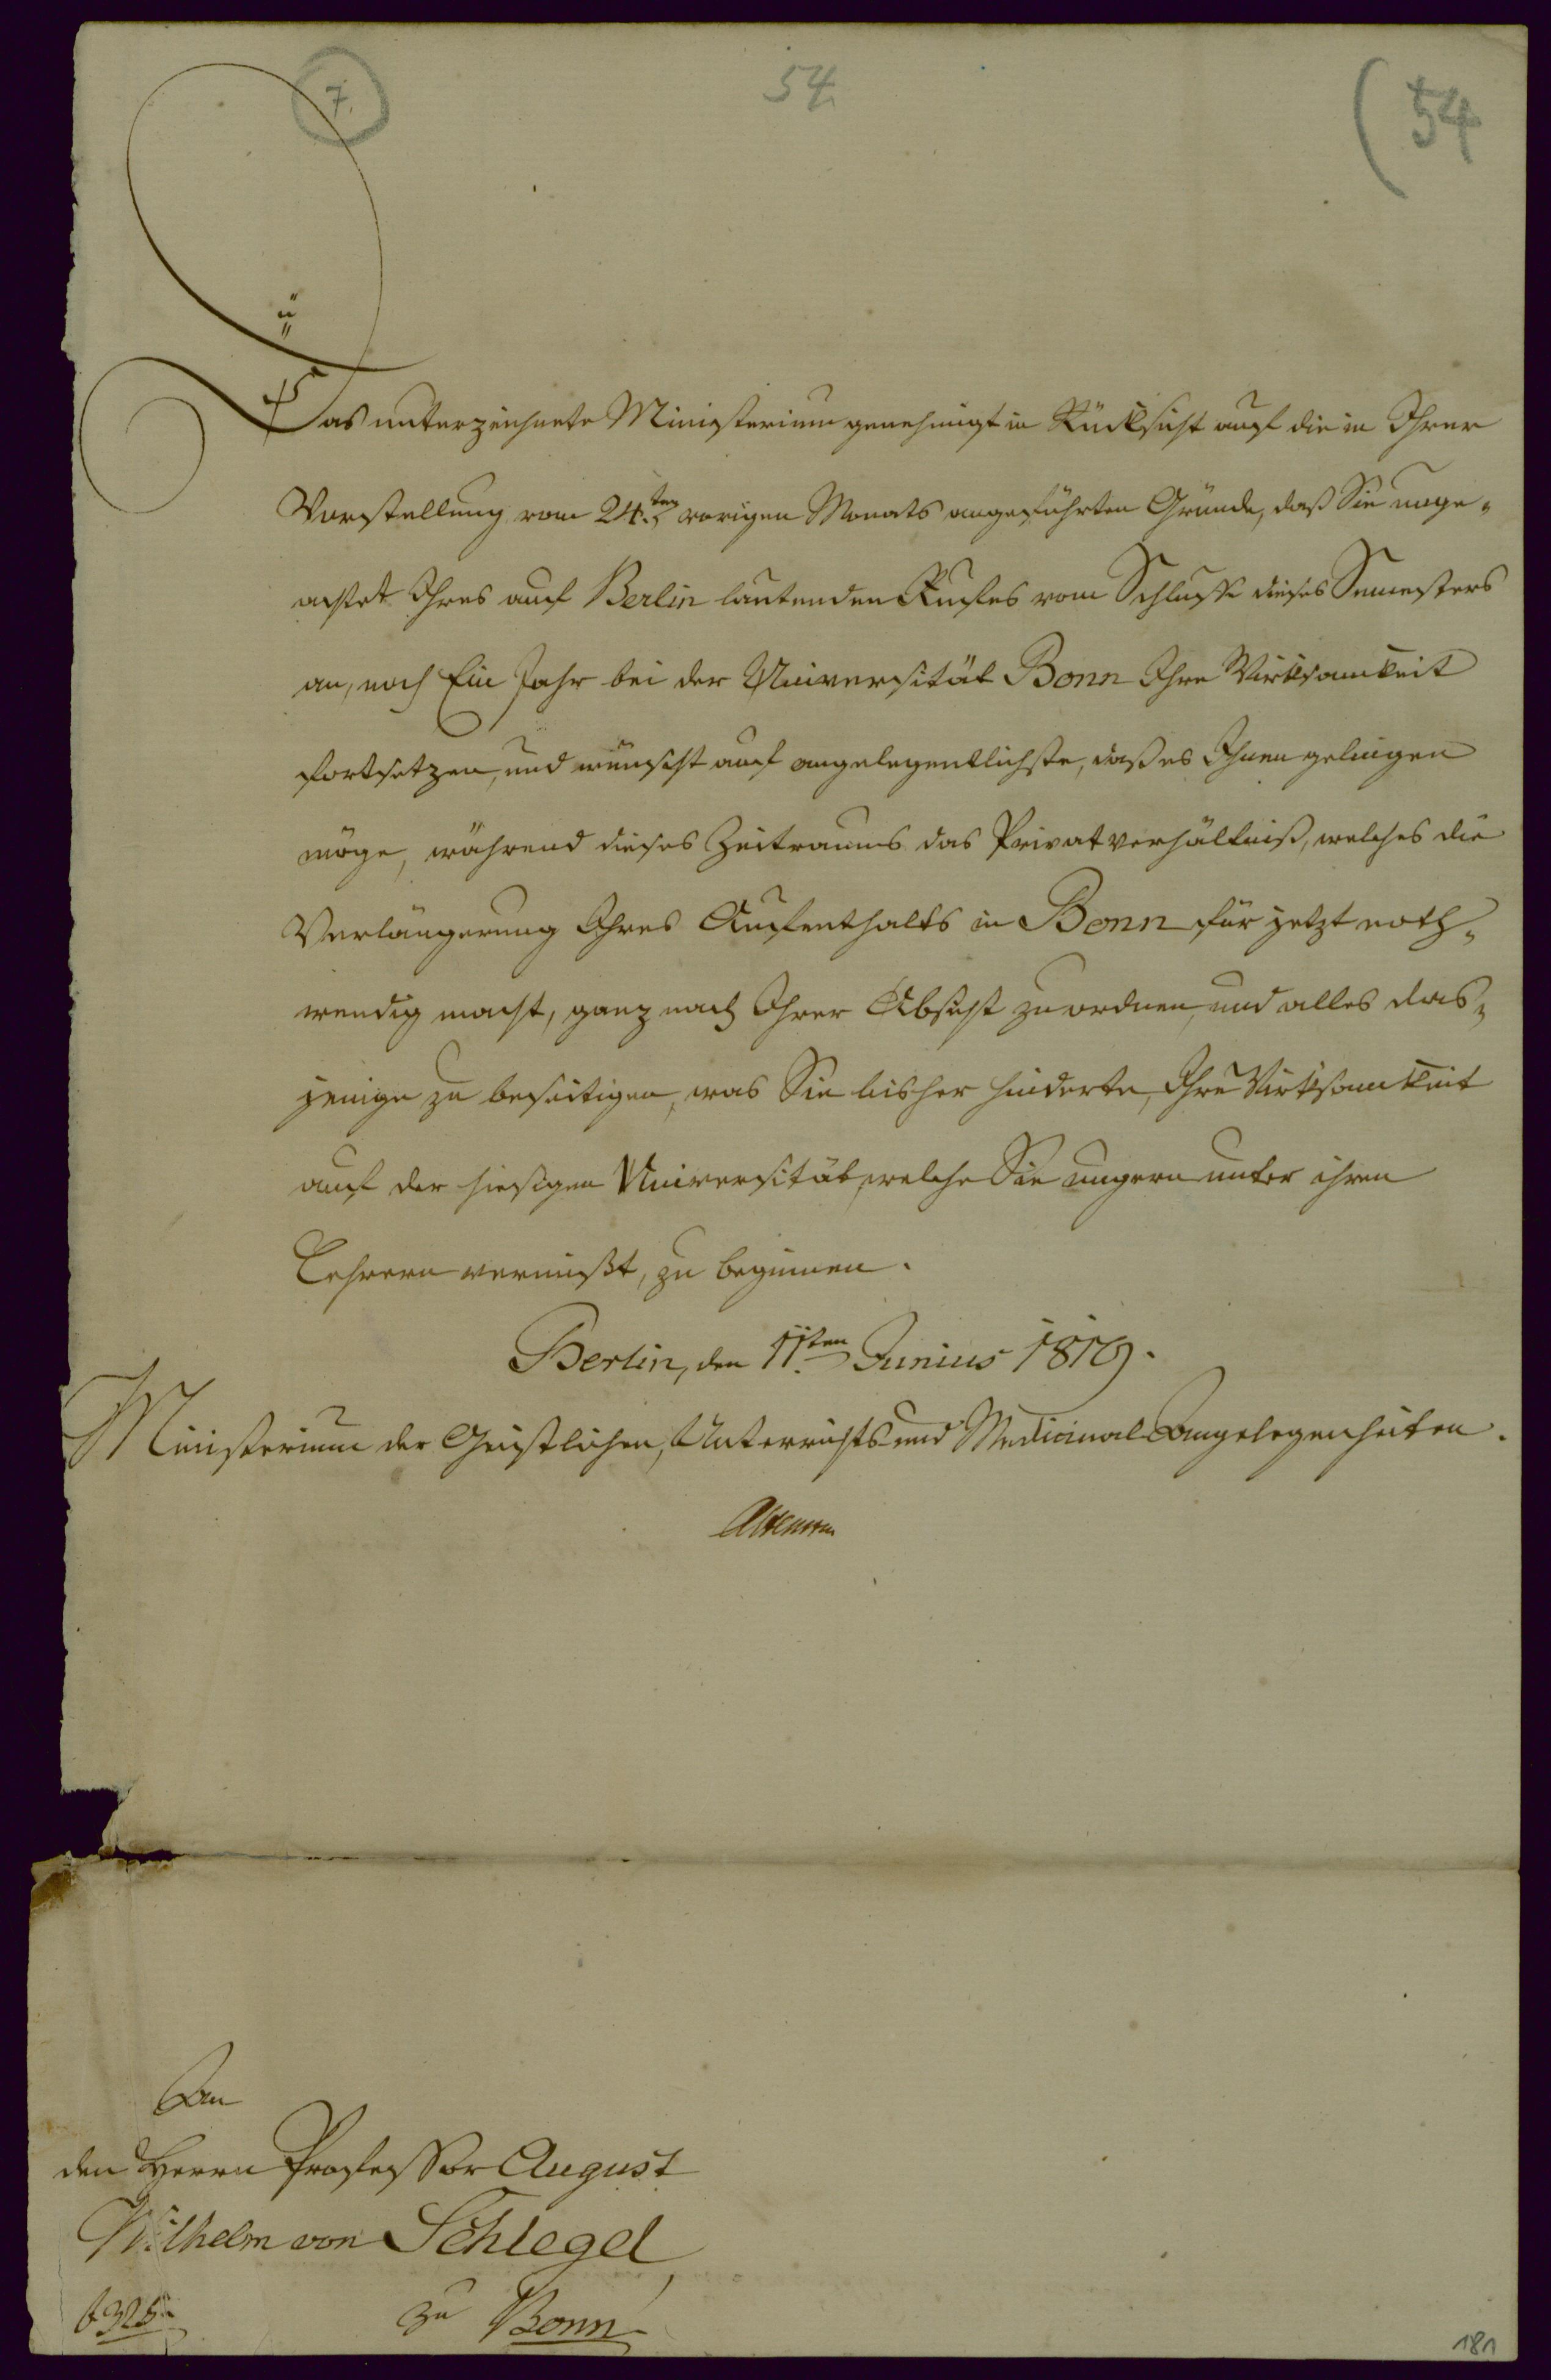 7.
54.
54
Das unterzeichnete Ministerium genehmigt in Rücksicht auf die in Ihrer
Vorstellung vom 24.ten vorigen Monats angeführten Gründe, daß Sie unge-
achtet Ihres auf Berlin lautenden Rufes vom Schlusse dieses Semesters
an, noch Ein Jahr bei der Universität Bonn Ihre Wirksamkeit
fortsetzen, und wünscht auf angelegentlichste, daß es Ihnen gelingen
möge, während dieses Zeitraums das Privatverhältniß, welches die
Verlängerung Ihres Aufenthalts in Bonn für jetzt noth-
wendig macht, ganz nach Ihrer Absicht zu ordnen, und alles das-
jenige zu beseitigen, was Sie bisher hinderte, Ihre Wirksamkeit
auf der hiesigen Universität, welche Sie ungern unter ihren
Lehrern vermißt, zu beginnen.
Berlin, den 11.ten Junius 1819.
Ministerium der Geistlichen, Unterrichts und Medicinal Angelegenheiten.
Altenstein
An
den Herrn Professor August
Wilhelm von Schlegel
zu Bonn.
181